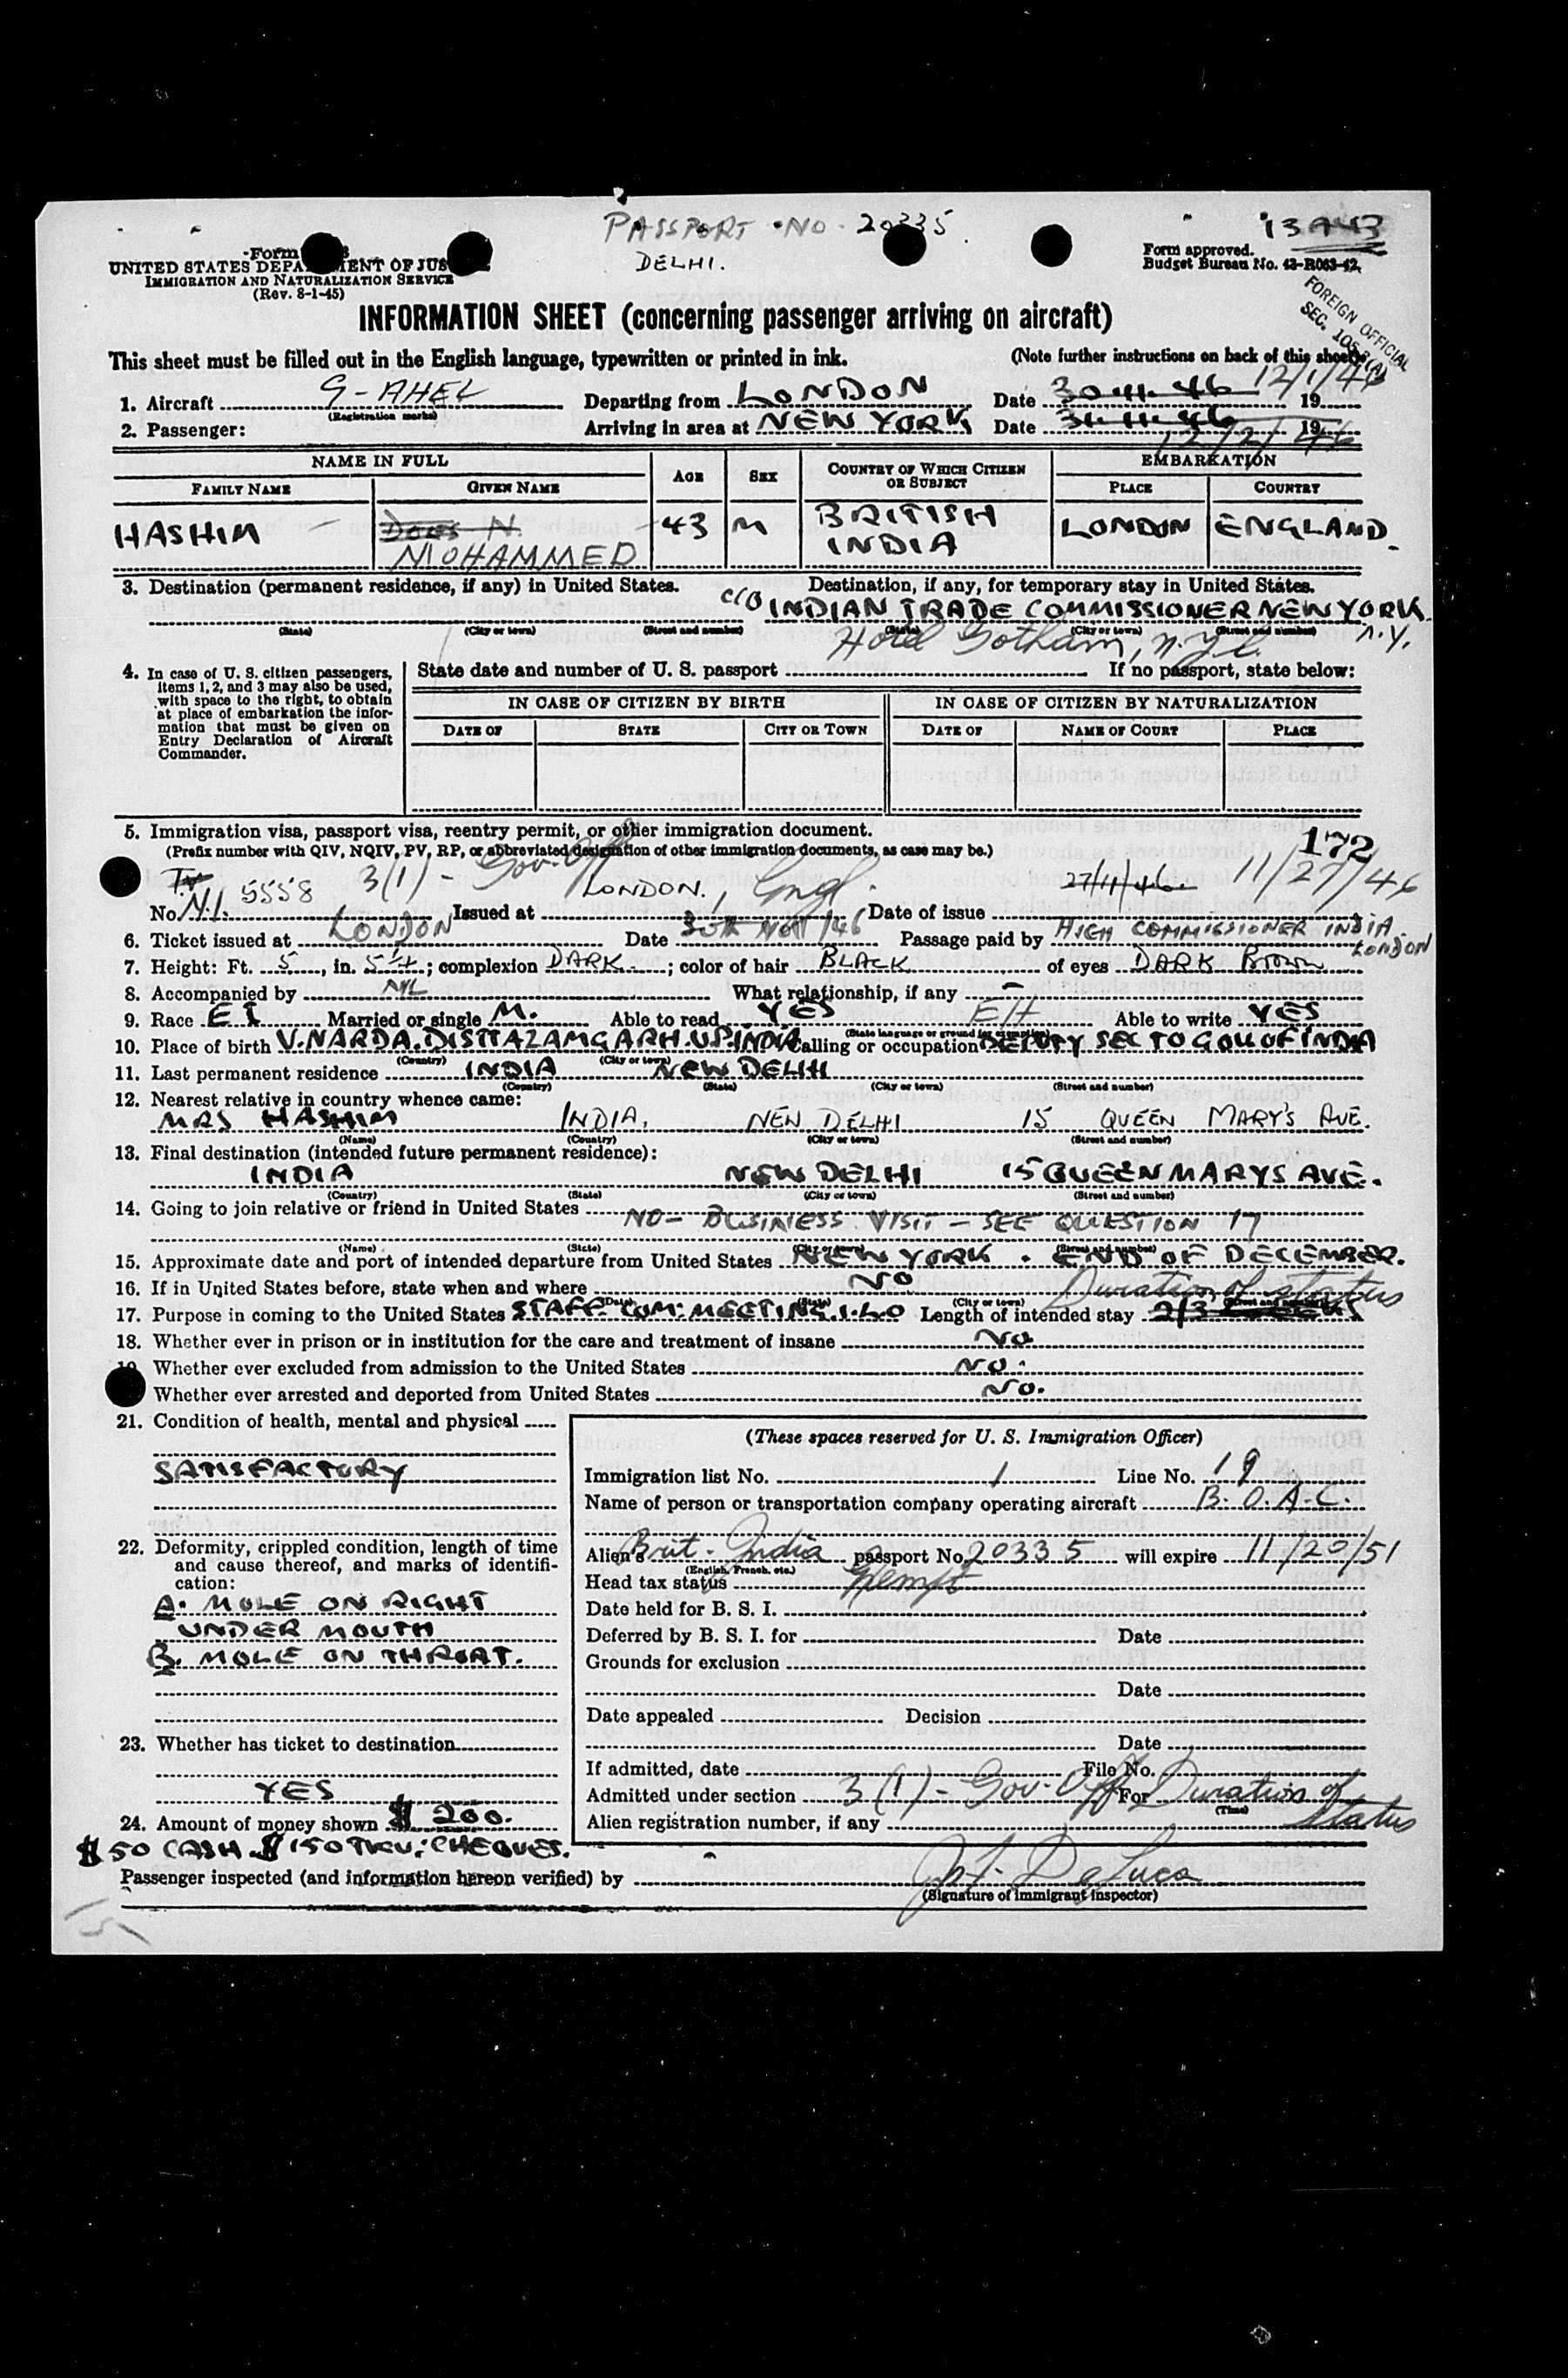 PASSPORT NO. 20335
DELHI.
13943
Form
UNITED STATES DEPARTMENT OF JUSTICE
IMMIGRATION AND NATURALIZATION SERVICE
(Rev. 8-1-45)
Form approved.
Budget Bureau No. 43-R063-42.
FOREIGN OFFICIAL
SEC.
INFORMATION SHEET (concerning passenger arriving on aircraft)
This sheet must be filled out in the English language, typewritten or printed in ink. (Note further instructions on back of this sheet)
1. Aircraft G-AHEL Departing from LONDON Date 30.11.46 12/1/46 19
(Registration marks)
2. Passenger: Arriving in area at NEW YORK Date 31.11.46 12/2/46 19
NAME IN FULL AGE SEX COUNTRY OF WHICH CITIZEN OR SUBJECT EMBARKATION
FAMILY NAME GIVEN NAME PLACE COUNTRY
HASHIM N. MOHAMMED 43 M BRITISH INDIA LONDON ENGLAND.
3. Destination (permanent residence, if any) in United States. Destination, if any, for temporary stay in United States.
C/O INDIAN TRADE COMMISSIONER NEW YORK N.Y.
(State) (City or town) (Street and number) (State) (City or town) (Street and number)
Hotel Gotham, N.Y.C.
4. In case of U. S. citizen passengers, items 1, 2, and 3 may also be used, with space to the right, to obtain at place of embarkation the information that must be given on Entry Declaration of Aircraft Commander.
State date and number of U. S. passport If no passport, state below:
IN CASE OF CITIZEN BY BIRTH IN CASE OF CITIZEN BY NATURALIZATION
DATE OF STATE CITY OR TOWN DATE OF NAME OF COURT PLACE
5. Immigration visa, passport visa, reentry permit, or other immigration document.
172
(Prefix number with QIV, NQIV, PV, RP, or abbreviated designation of other immigration documents, as case may be.)
3(1) - Gov. Off
No. N.I. 5558 Issued at LONDON, Engl. Date of issue 27/11/46. 11/27/46
6. Ticket issued at LONDON Date 30th Nov/46 Passage paid by HIGH COMMISSIONER INDIA. LONDON
7. Height: Ft. 5, in. 5 1/4; complexion DARK; color of hair BLACK of eyes DARK BROWN
8. Accompanied by NIL What relationship, if any -
9. Race E I Married or single M. Able to read YES EH Able to write YES
(State language or ground for exemption)
10. Place of birth V. NARDA. DISTT AZAMGARH. U.P. INDIA Calling or occupation DEPUTY SEC TO GOU OF INDIA
(Country) (City or town)
11. Last permanent residence INDIA NEW DELHI
(Country) (State) (City or town) (Street and number)
12. Nearest relative in country whence came:
MRS HASHIM INDIA, NEW DELHI 15 QUEEN MARY'S AVE.
(Name) (Country) (City or town) (Street and number)
13. Final destination (intended future permanent residence):
INDIA NEW DELHI 15 QUEEN MARYS AVE.
(Country) (State) (City or town) (Street and number)
14. Going to join relative or friend in United States
NO - BUSINESS VISIT - SEE QUESTION 17
(Name) (State) (City or town) (Street and number)
15. Approximate date and port of intended departure from United States NEW YORK. END OF DECEMBER.
16. If in United States before, state when and where NO
(Date) (State) (City or town) (Street and number)
Duration of status
17. Purpose in coming to the United States STAFF. COM: MEETING. I.L.O Length of intended stay 2/3 WEEKS
18. Whether ever in prison or in institution for the care and treatment of insane NO
19. Whether ever excluded from admission to the United States NO.
Whether ever arrested and deported from United States NO.
21. Condition of health, mental and physical
SATISFACTORY
22. Deformity, crippled condition, length of time and cause thereof, and marks of identification:
A. MOLE ON RIGHT
UNDER MOUTH
B. MOLE ON THROAT.
23. Whether has ticket to destination
YES
24. Amount of money shown $ 200.
$50 CASH. $150 TRV: CHEQUES.
(These spaces reserved for U. S. Immigration Officer)
Immigration list No. 1 Line No. 19
Name of person or transportation company operating aircraft B.O.A.C.
Alien's Brit-India passport No. 20335 will expire 11/20/51
(English, French, etc.)
Head tax status Exempt
Date held for B. S. I.
Deferred by B. S. I. for Date
Grounds for exclusion
Date
Date appealed Decision
Date
If admitted, date File No.
Admitted under section 3(1) - Gov. Off For Duration of status
(Time)
Alien registration number, if any
Passenger inspected (and information hereon verified) by
(Signature of immigrant inspector)